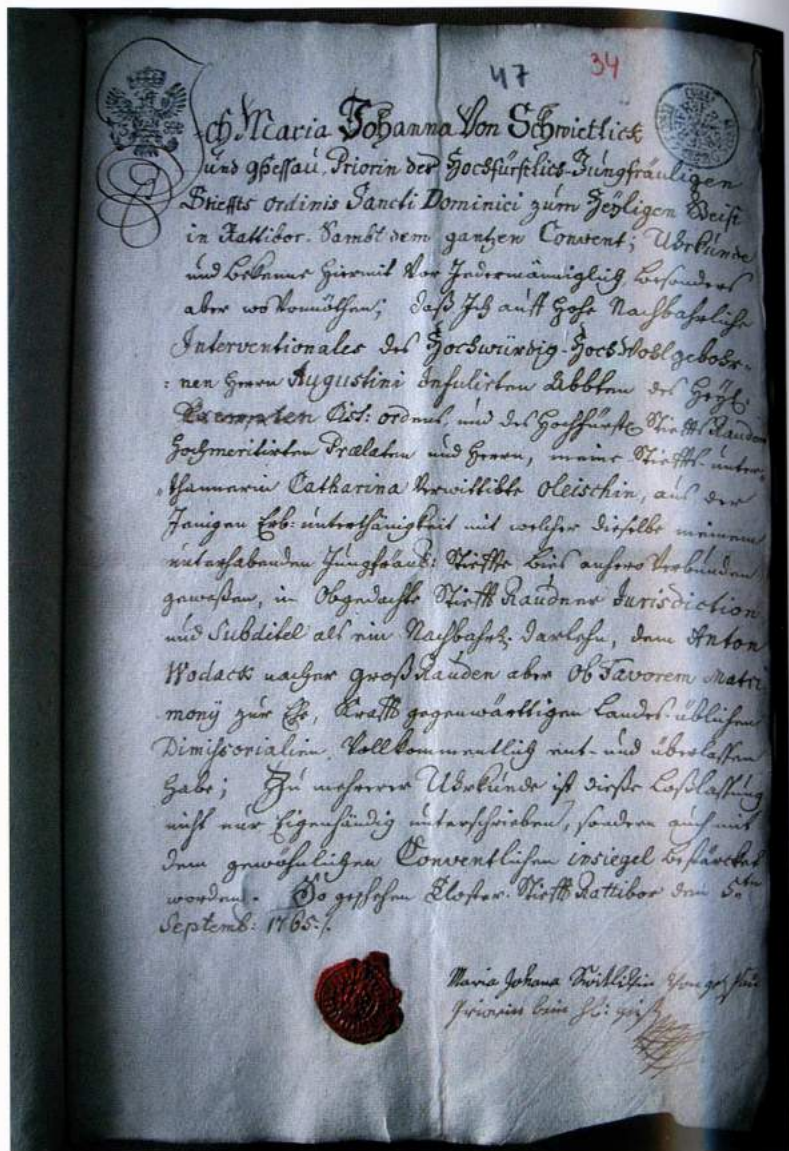 47 34
Ich Maria Johanna Von Schwietlick
und gheßau, Priorin des Hochfürstlich-Jungfräuligen
Stieffts ordinis Sancti Dominici zum Heyligen Geist
in Rattibor. Sambt dem gantzen Convent; Uhrkunde
und bekenne hiermit vor Jedermänniglich, besonders
aber wo Vonnöthen; daß Ich auff hohe Nachbahrliche
Interventionales des Hochwürdig-HochWohlgebohr-
nen Herrn Augustini Infulirten Abbten des Heyl:
Exempten Cist: ordens, und des Hochfürstl: Stieffts Rauden
Hochmeritirten Prælaten und Herrn, meine Stieffts-unter-
thannerin Catharina verwittibte Oleischin, aus der
Jenigen Erb-unterthänigkeit mit welcher dieselbe meinem
unterhabenden Jungfräul: Stieffte bies anhero verbunden
geweßen, in Obgedachte Stiefft Raudner Jurisdiction
und Subditel als ein Nachbahrl: Darlehn, dem Anton
Wodack nacher groß Rauden aber ob Favorem Matri
monÿ zur Ehe, Krafft gegenwärttigen Landes-üblichen
Dimissorialien, Vollkommentlich ent- und überlassen
habe; Zu mehrerer Uhrkunde ist dieße Loßlassung
nicht nur Eigenhändig unterschrieben, sondern auch mit
dem gewöhnlichen Conventlichen insiegel bestärcket
worden. So geschehen Closter-Stiefft Rattibor den 5ten
Septemb: 1765.
Maria Johana
Priorin beim hl: geist